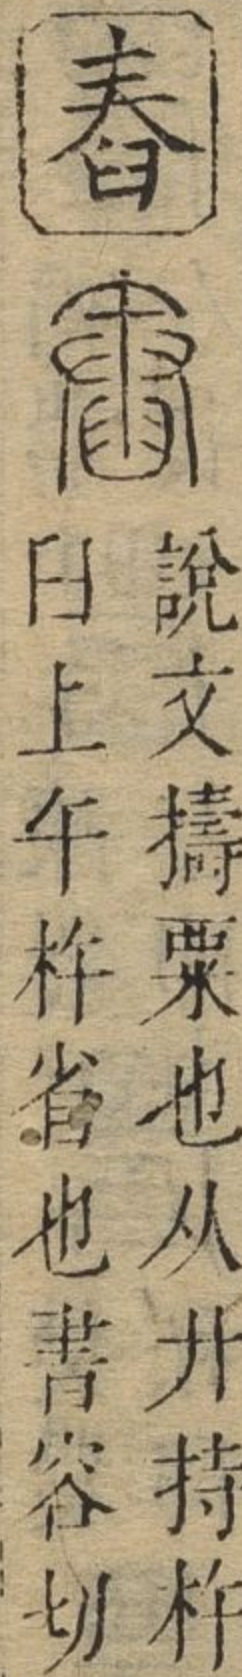 舂
舂
說文擣粟也从廾持杵
臼上午杵省也書容切